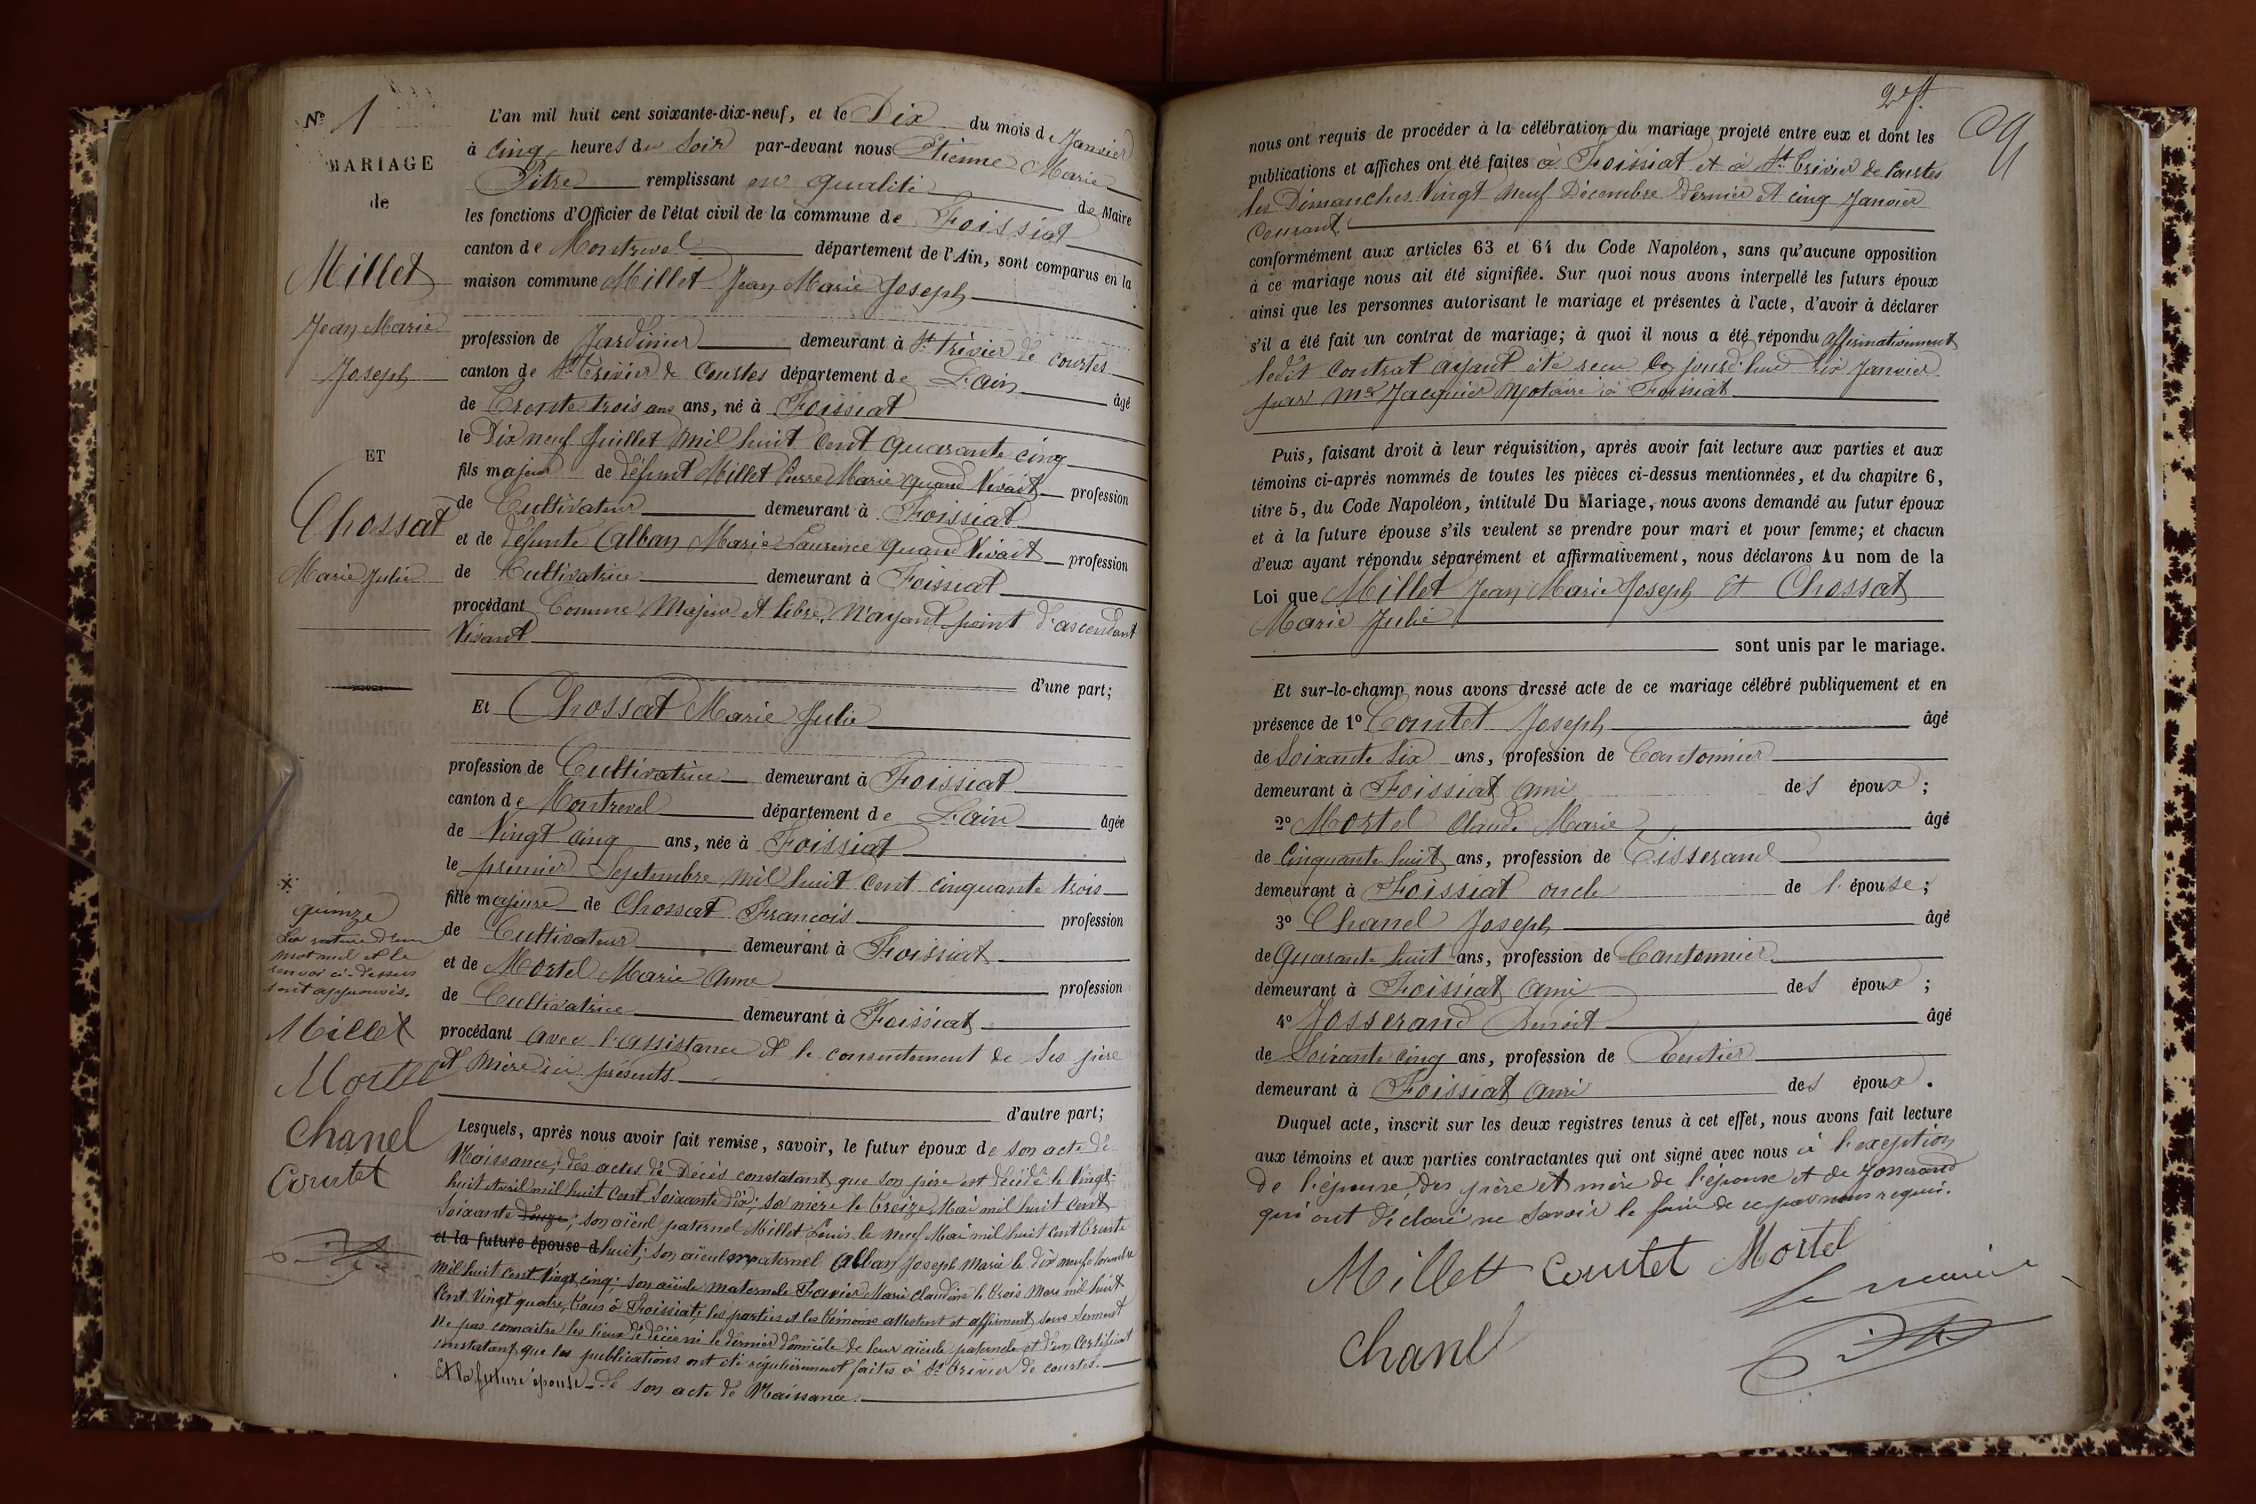 Nº 1
MARIAGE
de
Millet
Jean Marie
Joseph
ET
Chossat
Marie Julie
quinze
La rature d'un
mot nul et le
renvoi ci-dessus
sont approuvés.
Millet
Mortel
Chanel
Coutet
L'an mil huit cent soixante-dix-neuf, et le Dix du mois de Janvier
à cinq heures du Soir par-devant nous Etienne Marie
Pitre remplissant en qualité de Maire
les fonctions d'Officier de l'état civil de la commune de Foissiat
canton de Montrevel département de l'Ain, sont comparus en la
maison commune Millet Jean Marie Joseph
profession de Jardinier demeurant à St trivier de Courtes
canton de St Trivier de Courtes département de L'ain âgé
de Trente trois ans ans, né à Foissiat
le Dix neuf Juillet mil huit cent quarante cinq
fils majeur de défunt Millet Pierre Marie quand Vivait profession
de Cultivateur demeurant à Foissiat
et de défunte Alban Marie Laurence quand Vivait profession
de Cultivatrice demeurant à Foissiat
procédant Comme Majeur et libre, N'ayant point d'ascendant
Vivant
d'une part;
Et Chossat Marie Julie
profession de Cultivatrice demeurant à Foissiat
canton de Montrevel département de L'ain âgée
de Vingt cinq ans, née à Foissiat
le premier Septembre mil huit cent cinquante trois
fille majeure de Chossat Francois profession
de Cultivateur demeurant à Foissiat
et de Mortel Marie Anne profession
de Cultivatrice demeurant à Foissiat
procédant avec l'assistance et le consentement de Ses père
et mère ici présents
d'autre part;
Lesquels, après nous avoir fait remise, savoir, le futur époux de son acte de
Naissance; des actes de Décès constatant que son père est décédé le Vingt-
huit Avril mil huit cent Soixante dix; sa mère le treize Mai mil huit cent
Soixante douze; son aïeul paternel Millet Louis le neuf Mai mil huit cent trente
et la future épouse d huit; son aïeul maternel Alban Joseph Marie le dix neuf
mil huit cent Vingt cinq; son aïeule maternelle Favier Marie Claudine le trois Mars mil huit
Cent Vingt quatre, tous à Foissiat, les parties et les témoins attestent et affirment sous serment
Ne pas connaitre les lieux de décès ni le dernier domicile de leur aïeule paternelle et d'un Certificat
constatant que les publications ont été régulièrement faites à St trivier de courtes.
Et la future épouse de son acte de Naissance.
nous ont requis de procéder à la célébration du mariage projeté entre eux et dont les
publications et affiches ont été faites à Foissiat et à St Trivier de Courtes
les Dimanches Vingt Neuf Décembre dernier et cinq Janvier
Courant
conformément aux articles 63 et 64 du Code Napoléon, sans qu'aucune opposition
à ce mariage nous ait été signifiée. Sur quoi nous avons interpellé les futurs époux
ainsi que les personnes autorisant le mariage et présentes à l'acte, d'avoir à déclarer
s'il a été fait un contrat de mariage; à quoi il nous a été répondu affirmativement
ledit contrat ayant été recu ce jourd'hui dix Janvier
par Me Jacquier Notaire à Foissiat
Puis, faisant droit à leur réquisition, après avoir fait lecture aux parties et aux
témoins ci-après nommés de toutes les pièces ci-dessus mentionnées, et du chapitre 6,
titre 5, du Code Napoléon, intitulé Du Mariage, nous avons demandé au futur époux
et à la future épouse s'ils veulent se prendre pour mari et pour femme; et chacun
d'eux ayant répondu séparément et affirmativement, nous déclarons Au nom de la
Loi que Millet Jean Marie Joseph Et Chossat
Marie Julie
sont unis par le mariage.
Et sur-le-champ nous avons dressé acte de ce mariage célébré publiquement et en
présence de 1º Coutet Joseph âgé
de Soixante Six ans, profession de Cantonnier
demeurant à Foissiat ami des époux;
2º Mortel Claude Marie âgé
de Cinquante huit ans, profession de Tisserand
demeurant à Foissiat oncle de l'épouse;
3º Chanel Joseph âgé
de Quarante huit ans, profession de Cantonnier
demeurant à Foissiat ami des époux;
4º Josserand Benoit âgé
de Soixante cinq ans, profession de Rentier
demeurant à Foissiat ami des époux.
Duquel acte, inscrit sur les deux registres tenus à cet effet, nous avons fait lecture
aux témoins et aux parties contractantes qui ont signé avec nous à l'exeption
de l'épouse, des père et mère de l'épouse et de Josserand
qui ont déclaré ne savoir le faire de ce par nous requis.
Millet Coutet Mortel
le maire
Chanel